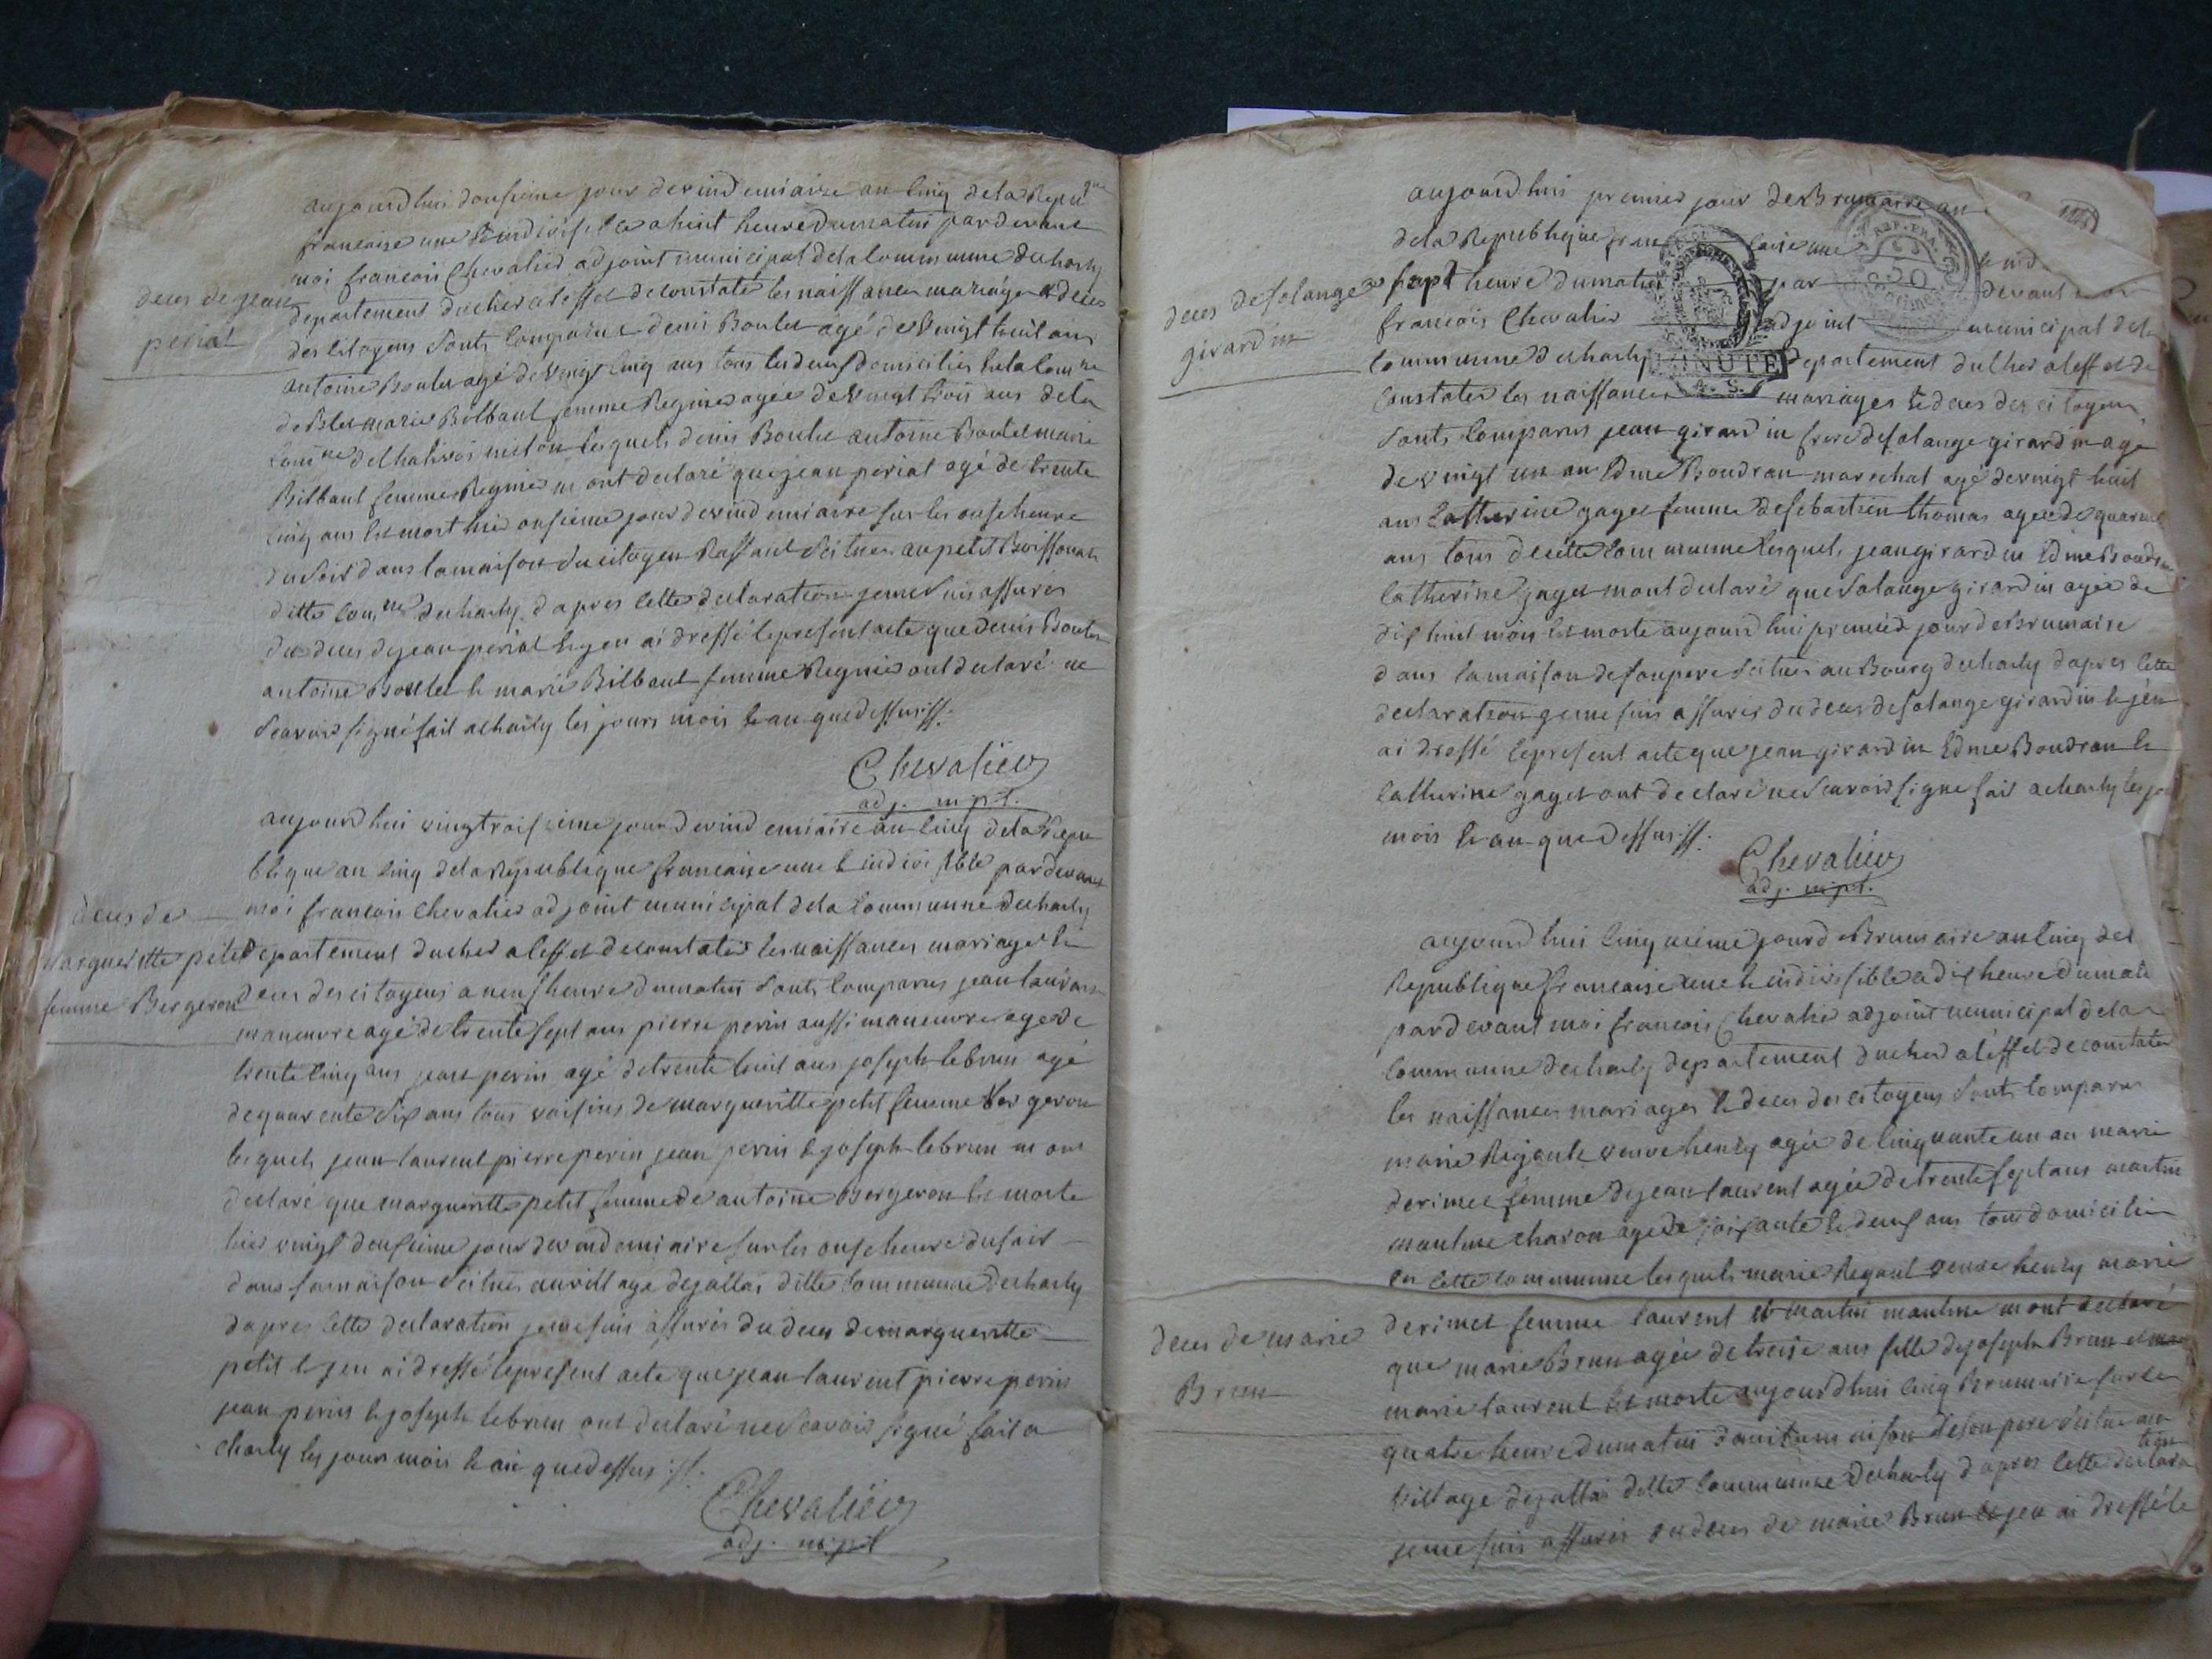 aujourd hui dousieme jour devindemiaire an cinq dela Repuque
francaise une & indivisible a huit heure dumatin pardevant
moi francois Chevalier adjoint municipal dela Commune ducharly
deces de jean
periat
departement ducher a leffet deconstater les naissances mariages & deces
des citoyens sonts comparut denis Boulet agé de vingt huit ans
antoine Boulet agé de vingt cinq ans tous les deux domicilies
de marie Bilbaut femme Regnier agée de vingt trois ans dela
comne lesquels denis Boulet antoine Boulet marie
Bilbaut femme Regnier m ont declaré que jean periat agé de trente
cinq ans est mort hier onsieme jour devindemiaire sur les onse heure
du soir dans lamaison du citoyen scituer au petit
ditte comne ducharly d apres cette declaration jeme suis assurer
du deces de jean periat & jen ai dressé lepresent acte que denis Boulet
antoine Boulet & marie Bilbaut femme Regnier ont declaré ne
scavoir signé fait a charly les jours mois & an que dessus ·/·
Chevalier
adj. mpl.
aujourd hui vingtroisieme jour devindemiaire an cinq dela Repu
blique an cinq dela Republique francaise une & indivisible pardevant
deces de
moi francois Chevalier adjoint municipal dela Commune ducharly
margueritte petit
departement ducher a leffet deconstater les naissances mariages &
femme Bergeron
deces des citoyens a neuf heure dumatin sonts comparus jean laurant
maneuvre agé de trente sept ans pierre perin aussi maneuvre age de
trente cinq ans jean perin agé de trente huit ans joseph lebrun agé
de quarente six ans tous voisins de margueritte petit femme Bergeron
lesquels jean laurent pierre perin jean perin & joseph lebrun m ont
declaré que margueritte petit femme de antoine Bergeron est morte
hier vingt deusieme jour devindemiaire sur les onse heure du soir
dans samaison scituer au village de jallai ditte Commune ducharly
dapres cette declaration jeme suis assurer du deces de margueritte
petit & jen ai dressé lepresent acte que jean laurent pierre perin
jean perin & joseph lebrun ont declaré ne scavoir signé fait a
charly les jour mois & an que dessus ·/·
Chevalier
adj. mpl
aujourd hui premier jour de Brumaire an
dela Republique fran caise une
deces de solange
girardin
sept heure dumatin par devant moi
francois Chevalier adjoint municipal dela
Commune ducharly departement ducher a leffet de
MINUTE
REP. FRA.
constater les naissances mariages & deces des citoyens
sonts comparus jean girardin frere de solange girardin agé
de vingt un an Edme Boudran marechal agé de vingt huit
ans Catherine gaget femme de sebastien thomas agee de quarente
ans tous de cette commune lesquels jean girardin Edme Boudran
Catherine gaget mont declaré que solange girardin agée de
dix huit mois est morte aujourd hui premier jour de Brumaire
dans lamaison de son pere scituer au Bourg ducharly dapres cette
declaration jeme suis assurer du deces de solange girardin & jen
ai dressé lepresent acte que jean girardin Edme Boudran &
Catherine gaget ont declaré ne scavoir signe fait acharly les jour
mois & an que dessus ·/·
Chevalier
adj. mpl.
aujourd hui cinquieme jour de Brumaire an cinq dela
Republique francaise une & indivisible a dix heure dumatin
pardevant moi francois Chevalier adjoint municipal dela
Commune ducharly departement ducher a leffet deconstater
les naissances mariages & deces des citoyens sonts comparus
marie veuve henry agée de cinquante un an marie
derimet femme de jean laurent agée de trente sept ans martin
charon agé de soisante & deux ans tous domicilier
en cette commune lesquels marie veuve henry marie
derimet femme laurent & martin mont declaré
deces de marie
Brun
que marie Brun agée de treise ans fille de joseph Brun et
marie laurent est morte aujourd hui cinq Brumaire sur les
quatre heure dumatin dans lamaison de son pere scitue au
village de jallai ditte commune ducharly d apres cette declaration
jeme suis assurer du deces de marie Brun & jen ai dressé le